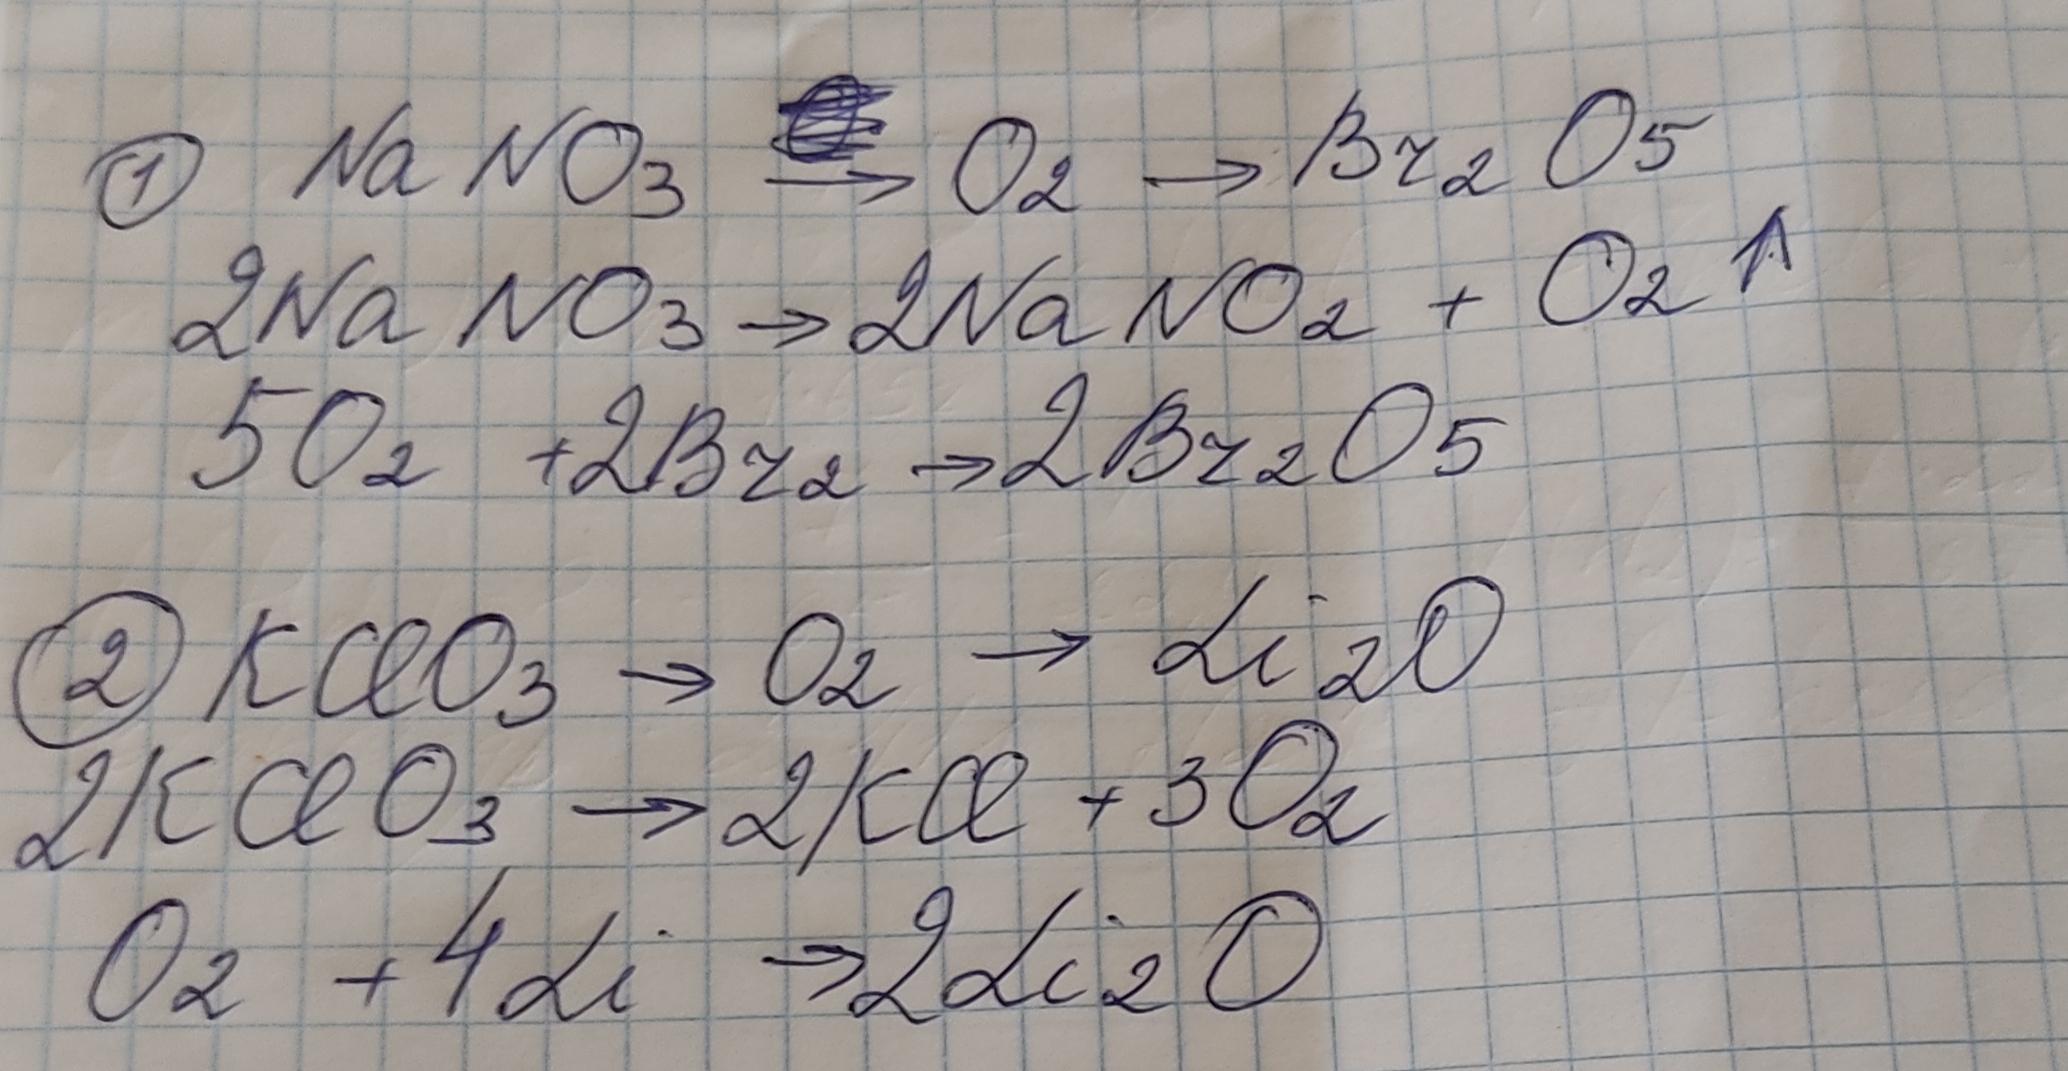 ① NaNO₃ → O₂ → Br₂O₅
2NaNO₃ → 2NaNO₂ + O₂↑
5O₂ + 2Br₂ → 2Br₂O₅
② KClO₃ → O₂ → Li₂O
2KClO₃ → 2KCl + 3O₂
O₂ + 4Li → 2Li₂O